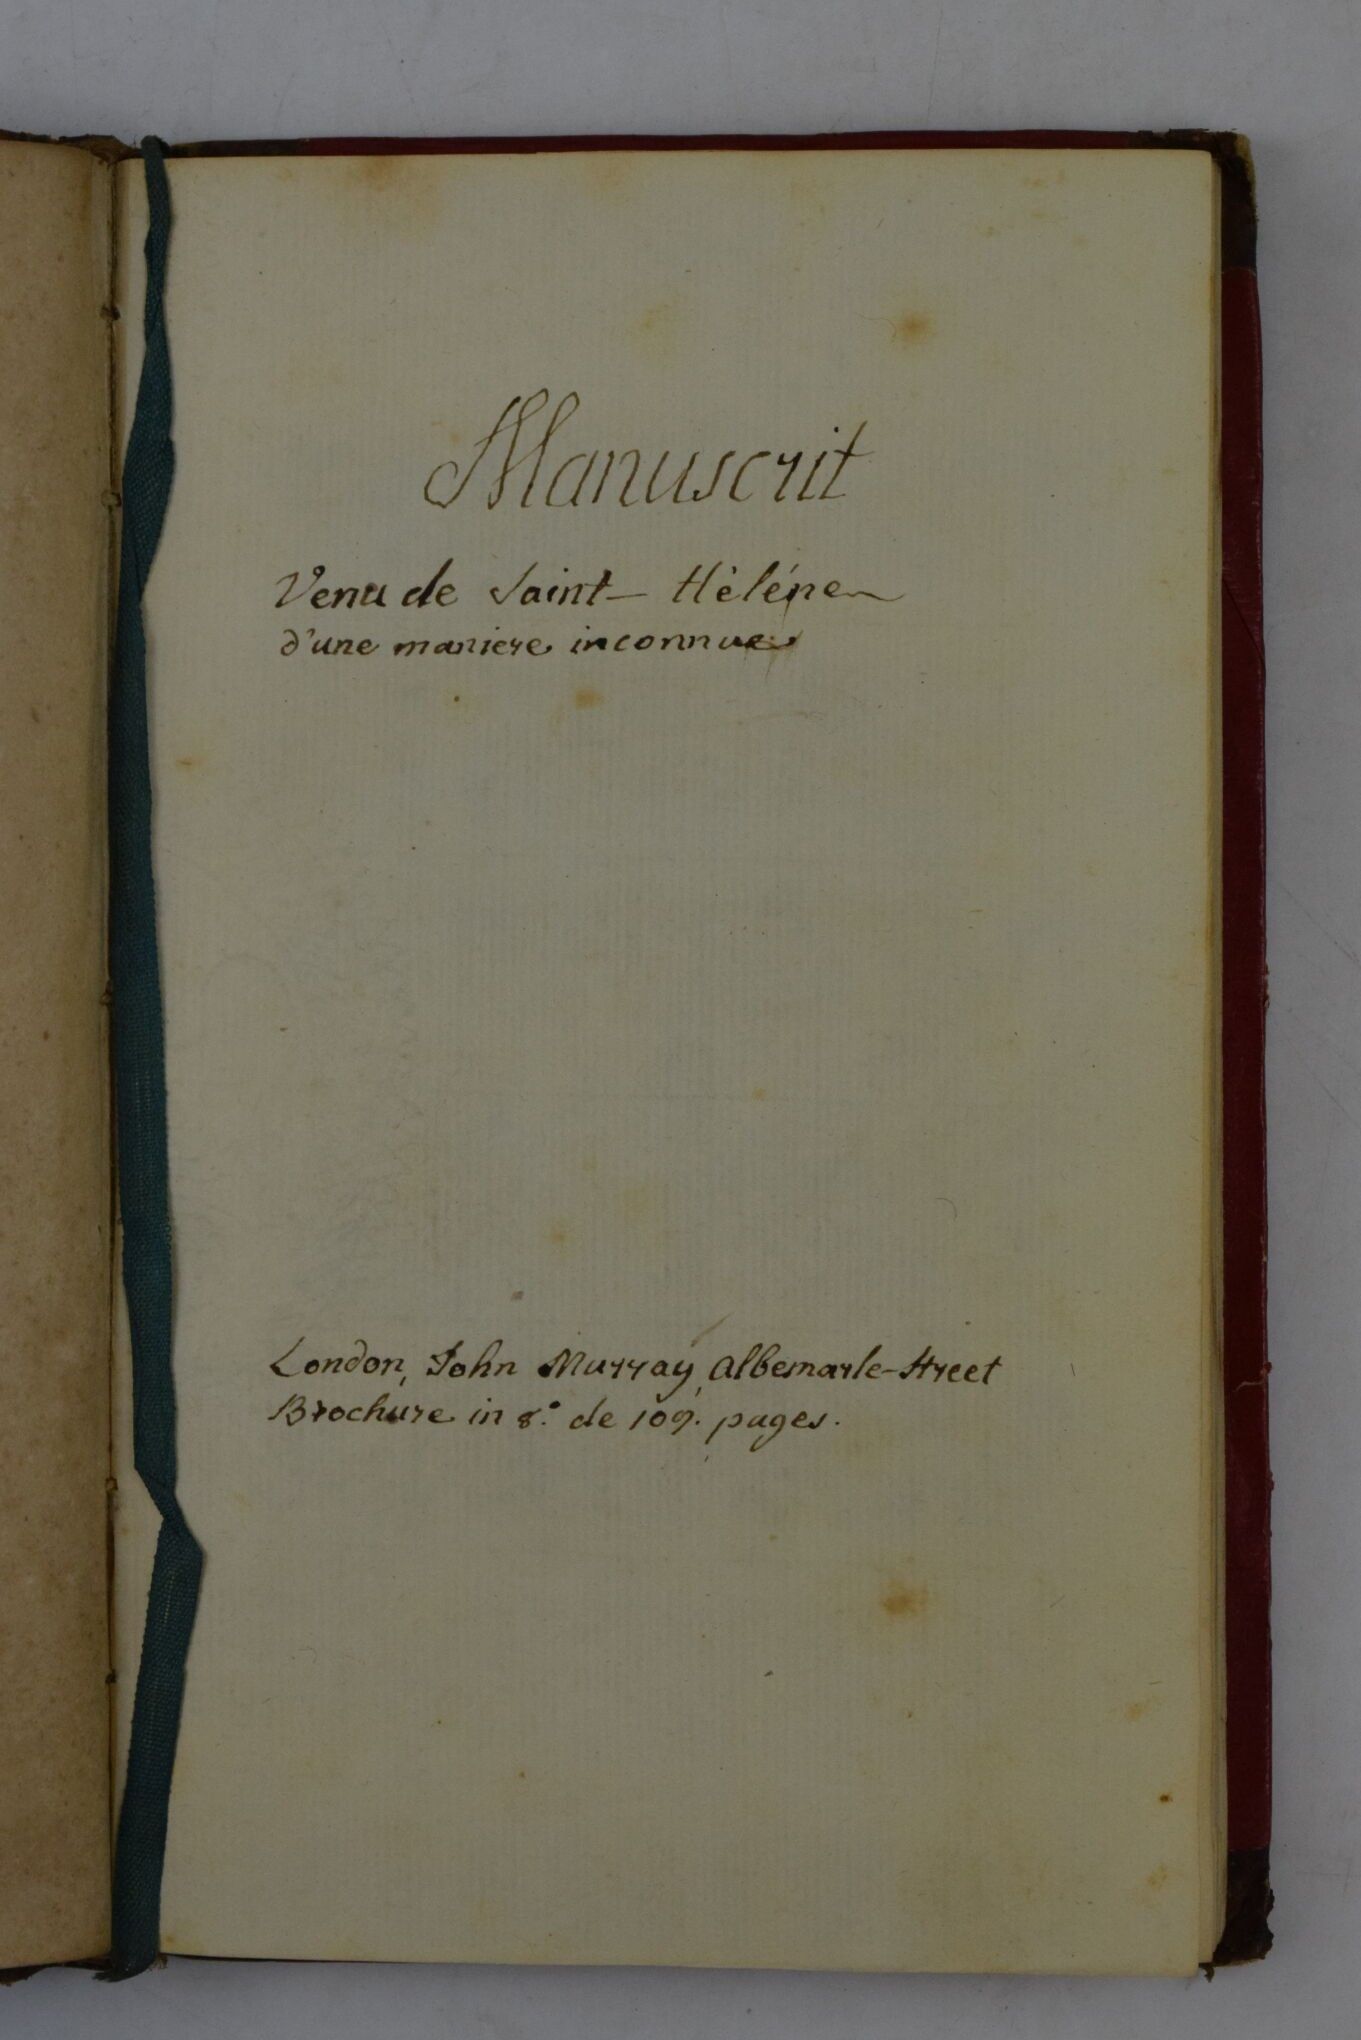 Manuscrit
Venu de Saint-Hèléne
d'une maniere inconnue
London, John Murray, Albemarle-Street
Brochure in 8.° de 109. pages.